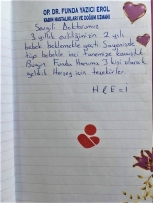 OP. DR. FUNDA YAZICI EROL
KADIN HASTALIKLARI VE DOĞUM UZMANI
Sevgili Doktorumuz
3 yıllık evliliğimizin 2 yılı
bebek beklemekle geçti. Sayenizde
tüp bebekle ilk denemede kavuştuk
Bugün Funda Hanıma 3 kişi olarak
geldik. Herşey için teşekkürler.
H & E = İ